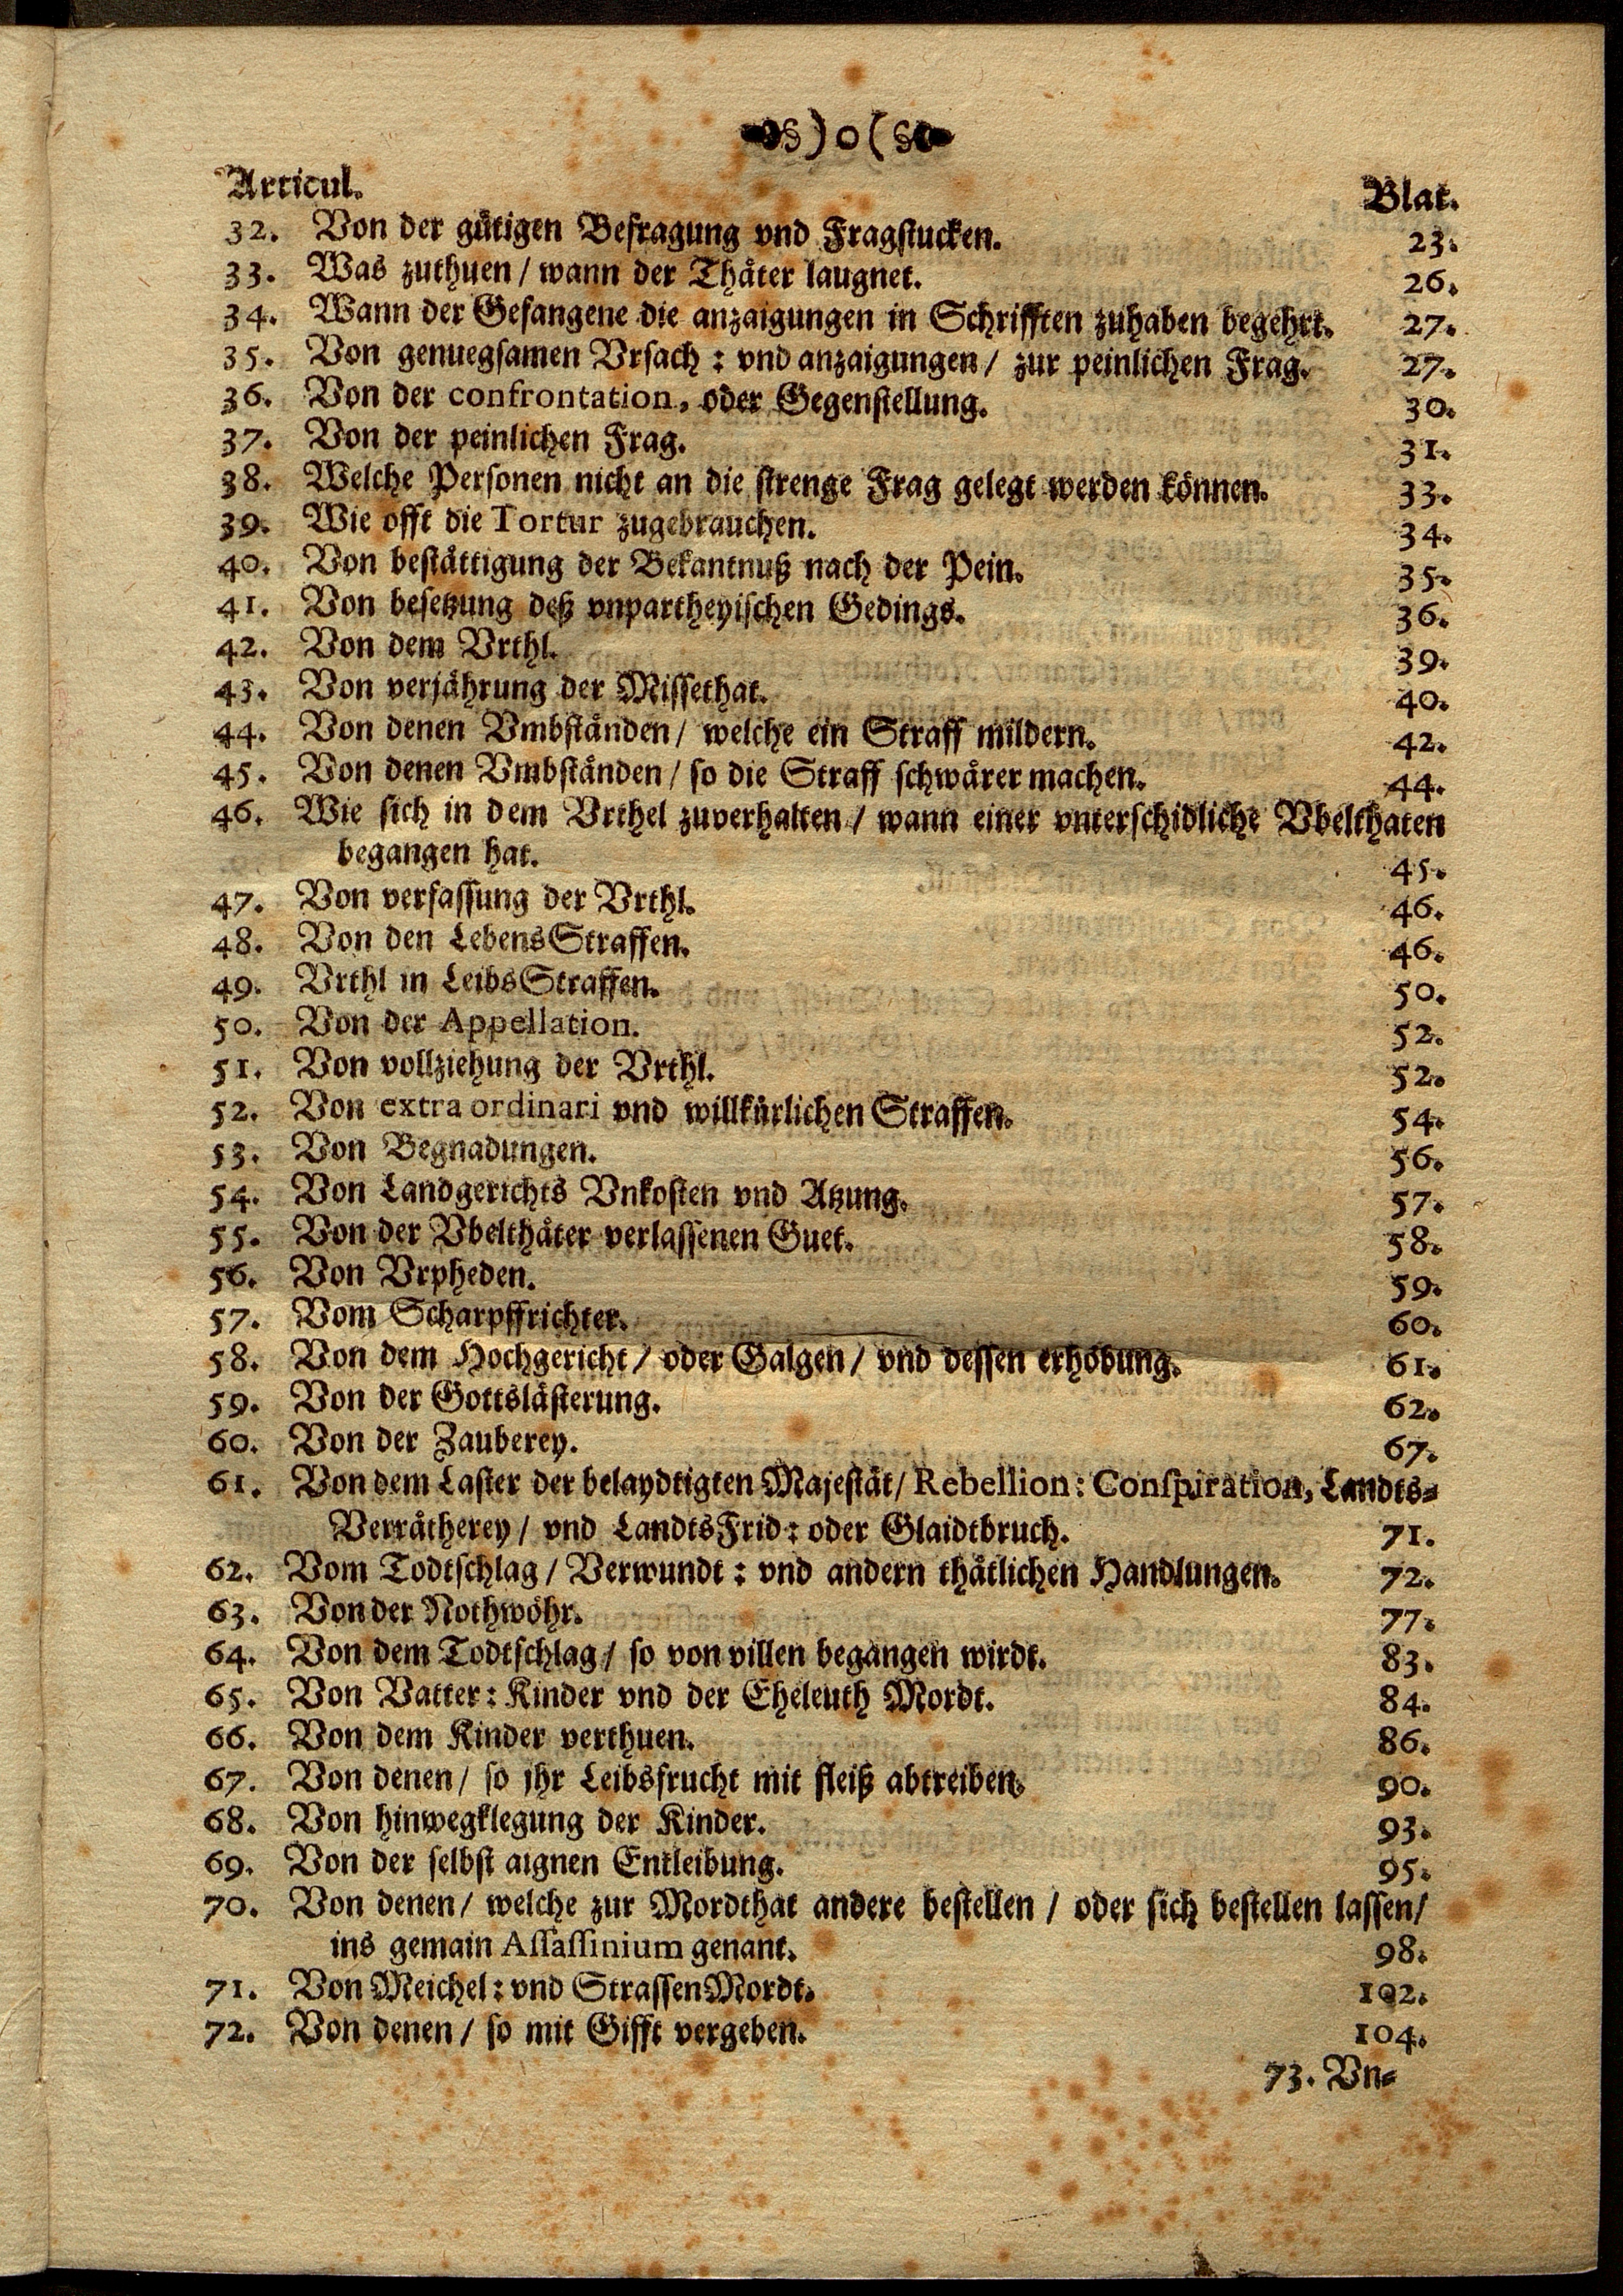 §)o(§
Articul. Blat.
32. Von der gütigen Befragung vnd Fragstucken. 23.
33. Was zuthuen / wann der Thäter laugnet. 26.
34. Wann der Gefangene die anzaigungen in Schrifften zuhaben begehrt. 27.
35. Von genuegsamen Vrsach : vnd anzaigungen / zur peinlichen Frag. 27.
36. Von der confrontation, oder Gegenstellung. 30.
37. Von der peinlichen Frag. 31.
38. Welche Personen nicht an die strenge Frag gelegt werden können. 33.
39. Wie offt die Tortur zugebrauchen. 34.
40. Von bestättigung der Bekantnuß nach der Pein. 35.
41. Von besetzung deß vnpartheyischen Gedings. 36.
42. Von dem Vrthl. 39.
43. Von verjährung der Missethat. 40.
44. Von denen Vmbständen / welche ein Straff mildern. 42.
45. Von denen Vmbständen / so die Straff schwärer machen. 44.
46. Wie sich in dem Vrthel zuverhalten / wann einer vnterschidliche Vbelthaten
begangen hat. 45.
47. Von verfassung der Vrthl. 46.
48. Von den LebensStraffen. 46.
49. Vrthl in LeibsStraffen. 50.
50. Von der Appellation. 52.
51. Von vollziehung der Vrthl. 52.
52. Von extra ordinari vnd willkürlichen Straffen. 54.
53. Von Begnadungen. 56.
54. Von Landgerichts Vnkosten vnd Atzung. 57.
55. Von der Vbelthäter verlassenen Guet. 58.
56. Von Vrpheden. 59.
57. Vom Scharpffrichter. 60.
58. Von dem Hochgericht / oder Galgen / vnd dessen erhöbung. 61.
59. Von der Gottslästerung. 62.
60. Von der Zauberey. 67.
61. Von dem Laster der belaydtigten Majestät / Rebellion : Conspiration, Landts-
Verrätherey / vnd LandtsFrid : oder Glaidtbruch. 71.
62. Vom Todtschlag / Verwundt : vnd andern thätlichen Handlungen. 72.
63. Von der Nothwöhr. 77.
64. Von dem Todtschlag / so von villen begangen wirdt. 83.
65. Von Vatter : Kinder vnd der Eheleuth Mordt. 84.
66. Von dem Kinder verthuen. 86.
67. Von denen / so jhr Leibsfrucht mit fleiß abtreiben. 90.
68. Von hinwegklegung der Kinder. 93.
69. Von der selbst aignen Entleibung. 95.
70. Von denen / welche zur Mordthat andere bestellen / oder sich bestellen lassen /
ins gemain Assassinium genant. 98.
71. Von Meichel : vnd StrassenMordt. 102.
72. Von denen / so mit Gifft vergeben. 104.
73. Vn-